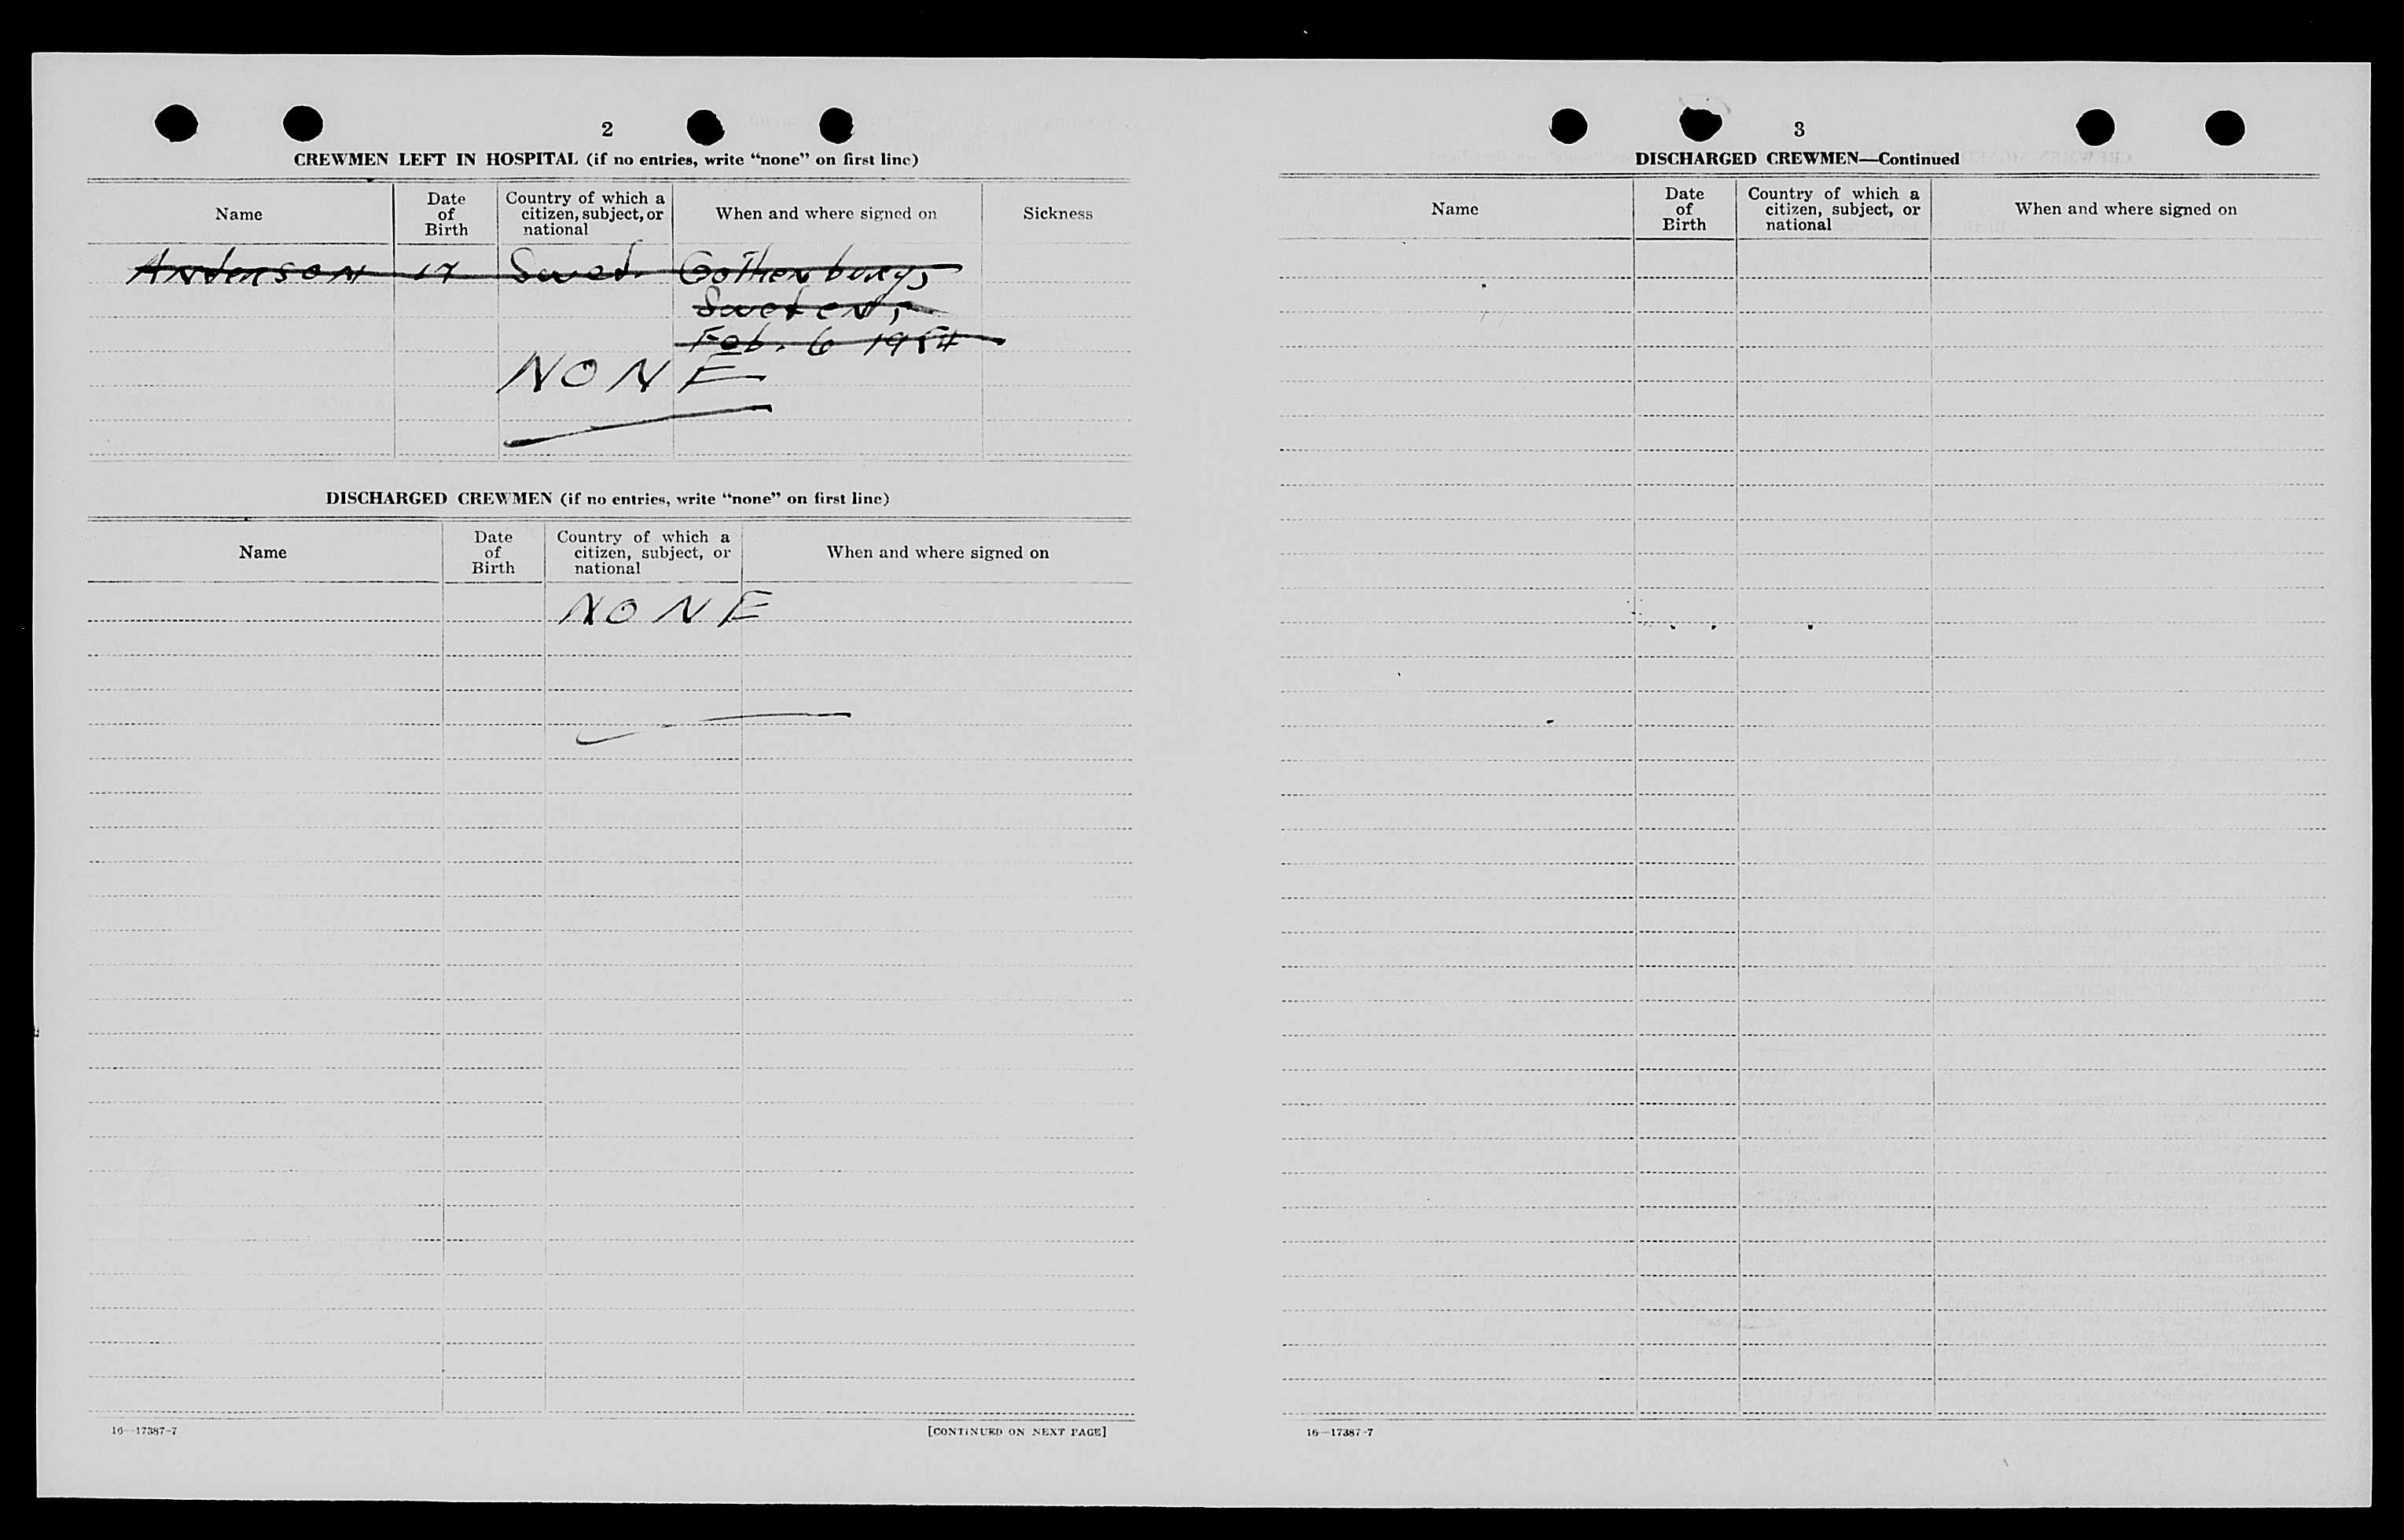 2
CREWMEN LEFT IN HOSPITAL (if no entries, write “none” on first line)
Name
Date of Birth
Country of which a citizen, subject, or national
When and where signed on
Sickness
Anderson 17 Swed. Gothenburg,
Sweden,
Feb. 6 1954
NONE
DISCHARGED CREWMEN (if no entries, write “none” on first line)
Name
Date of Birth
Country of which a citizen, subject, or national
When and where signed on
NONE
16—17387-7
[CONTINUED ON NEXT PAGE]
3
DISCHARGED CREWMEN—Continued
Name
Date of Birth
Country of which a citizen, subject, or national
When and where signed on
16—17387-7